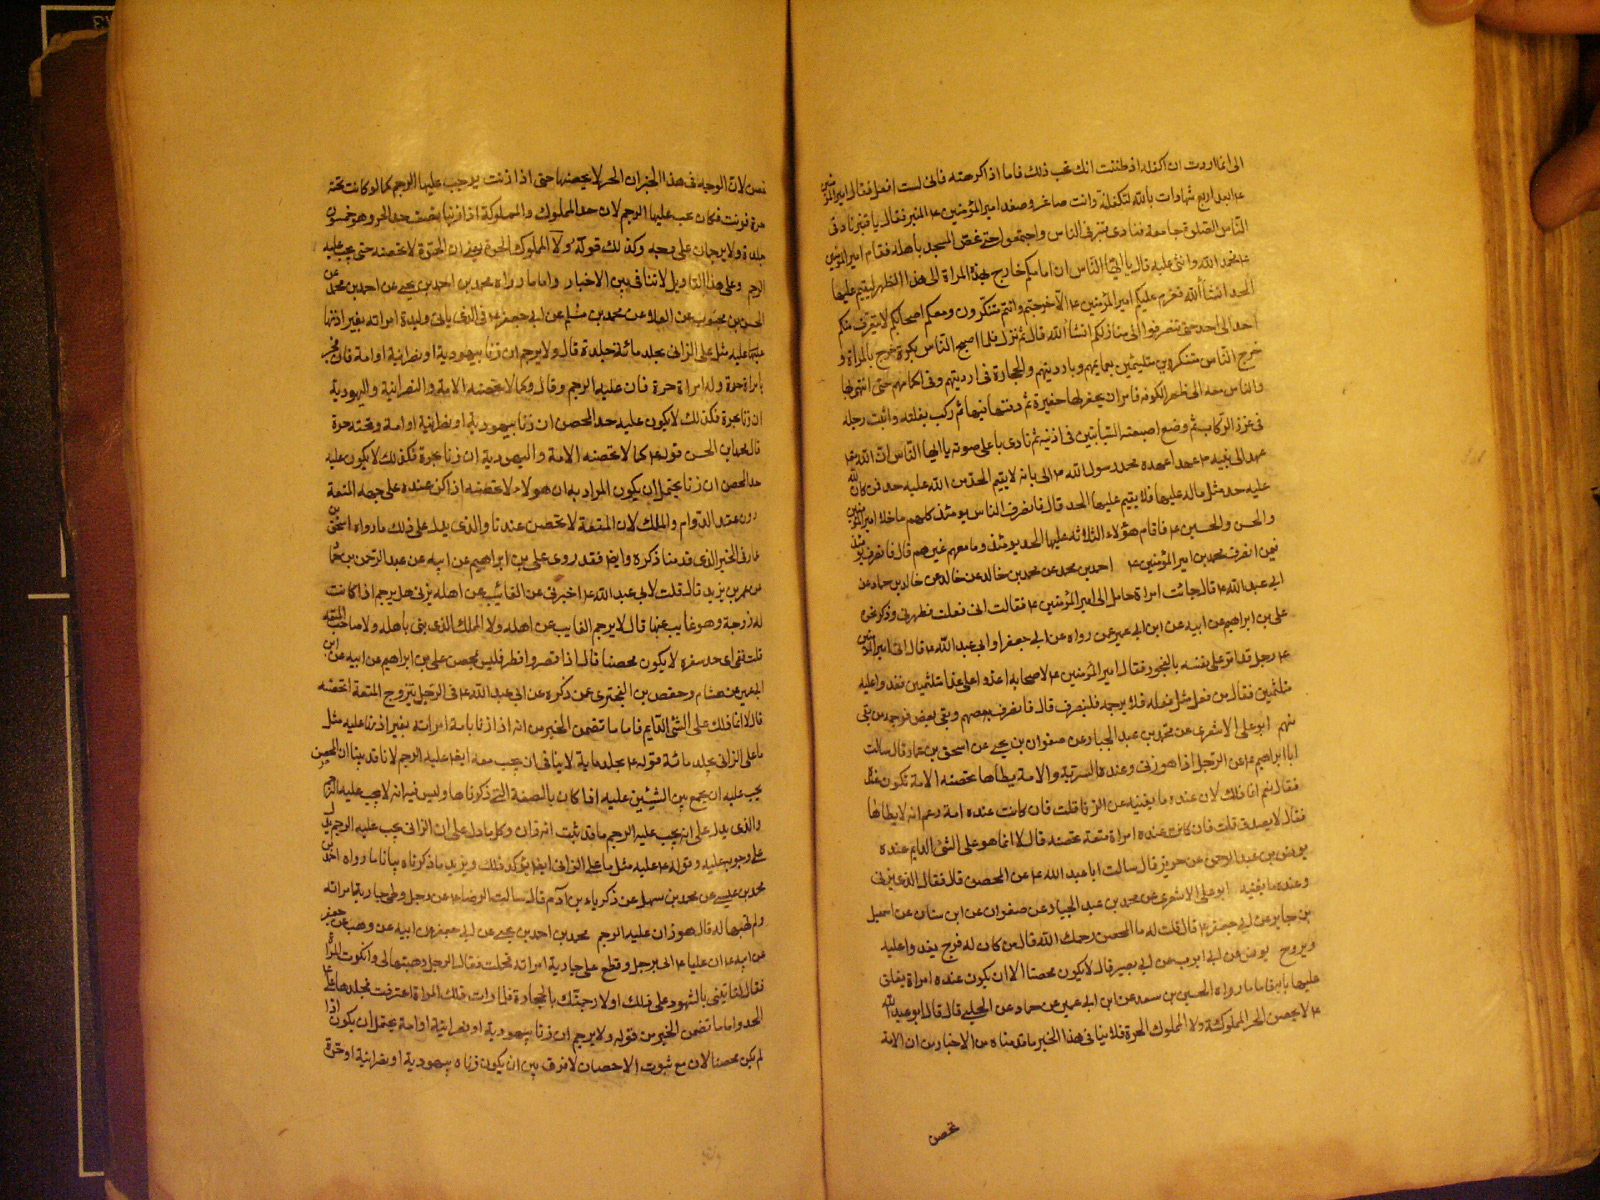 الى انما اردت ان اكفله اذ ظننت انك تحب ذلك فاما اذا كرهته فانى لست افعل فقال امير المؤمنين
ء ابعد اربع شهادات بالله لتكفلنه وانت صاغر وصعد امير المؤمنين ء المنبر فقال يا قنبر ناد فى
الناس الصلوة جامعة فنادى قنبر فى الناس واجتمعوا حتى غص المسجد باهله فقام امير المؤمنين
ء فحمد الله واثنى عليه قال يا ايها الناس ان امامكم خارج بهذه المراة الى هذا الظهر ليقيم عليها
الحد انشأ الله فعزم عليكم امير المؤمنين ء الا خرجتم وانتم متنكرون ومعكم احجاركم لا يتعرف منكم
احد الى احد حتى تنصرفوا الى منازلكم انشأ الله قال ثم نزل فلما اصبح الناس بكرة خرج بالمراة و
خرج الناس متنكرين متلثمين بعمايمهم وبارديتهم والحجارة فى ارديتهم وفى اكمامهم حتى انتهى بها
والناس معه الى ظهر الكوفه فامر ان يحفر لها حفيرة ثم دفنها فيها ثم ركب بغلته واثبت رجله
فى غرز الركاب ثم وضع اصبعيه السبابتين فى اذنيه ثم نادى باعلى صوته يا ايها الناس ان الله
عهد الى نبيه ء عهدا عهده محمد رسول الله ء الى بانه لا يقيم الحد من الله عليه حد فمن كان لله
عليه حد مثل ماله عليها فلا يقيم عليها الحد قال فانصرف الناس يومئذ كلهم ما خلا امير المؤمنين
والحسن والحسين ء فاقام هؤلاء الثلاثه عليها الحد يومئذ وما معهم غيرهم قال فانصرف يومئذ
فيمن انصرف محمد بن امير المؤمنين ء احمد بن محمد عن محمد بن خالد عن خالد بن حماد عن
ابى عبد الله ء قال جائت امراة حامل الى امير المؤمنين ء فقالت انى فعلت فطهرنى وذكر نحوه
على بن ابراهيم عن ابيه عن ابن ابى عمير عمن رواه عن ابى جعفر او ابى عبد الله ء قال اتى امير المؤمنين
ء رجل قد اقر على نفسه بالفجور فقال امير المؤمنين ء لاصحابه اغدوا على غدا متلثمين فغدوا عليه
متلثمين فقال من فعل مثل فعله فلا يرجمه فلينصرف قال فانصرف بعضهم وبقى بعض فرجمه من بقى
منهم ابو على الاشعرى عن محمد بن عبد الجبار عن صفوان بن يحيى عن اسحق بن عمار قال سالت
ابا ابراهيم ء عن الرجل اذا هو زنى وعنده السرية والامة يطاها تحصنه الامة تكون عنده
فقال نعم انما ذلك لان عنده ما يغنيه عن الزنا قلت فان كانت عنده امة زعم انه لا يطاها
فقال لا يصدق قلت فان كانت عنده امراة متعة تحصنه قال لا انما هو على الشئ الدايم عنده
يونس بن عبد الرحمن عن حريز قال سالت ابا عبد الله ء عن المحصن قال فقال الذى يزنى
وعنده ما يغنيه ابو على الاشعرى عن محمد بن عبد الجبار عن صفوان عن ابن سنان عن اسمعيل
بن جابر عن ابى جعفر ء قال قلت له ما المحصن رحمك الله قال من كان له فرج يغدو عليه
ويروح يونس عن ابى ايوب عن ابى بصير قال لا يكون محصنا الا ان يكون عنده امراة يغلق
عليها بابه فاما ما رواه الحسين بن سعد عن ابن ابى عمير عن حماد عن الحلبى قال قال ابو عبد الله
ء لا يحصن الحر المملوكة ولا المملوك الحرة فلا ينافى هذا الخبر ما قدمناه من الاخبار من ان الامة
تحصن
تحصن لان الوجه فى هذا الخبر ان الحر لا يحصنها حتى اذا زنت يوجب عليها الرجم كما لو كانت تحته
حرة فزنت فكان يجب عليها الرجم لان حد المملوك والمملوكة اذا زنيا نصف حد الحر وهو خمسون
جلدة ولا يرجمان على وجه وكذلك قوله ولا المملوك الحرة يعنى ان الحرة لا تحصنه حتى يجب عليه
الرجم وعلى هذا التاويل لا تنافى بين الاخبار واما ما رواه محمد بن احمد بن يحيى عن احمد بن محمد عن
الحسن بن محبوب عن العلا عن محمد بن مسلم عن ابى جعفر ء فى الذى ياتى وليدة امراته بغير اذنها
عليه مثل على الزانى يجلد مائة جلدة قال ولا يرجم ان زنا بيهودية او نصرانية او امة فان فجر
بامراة حرة وله امراة حرة فان عليه الرجم وقال وكما لا تحصنه الامة والنصرانية واليهودية
ان زنا بحرة فكذلك لا يكون عليه حد المحصن ان زنا بيهودية او نصرانية او امة وتحته حرة
قال محمد بن الحسن قوله ء كما لا تحصنه الامة واليهودية ان زنا بحرة فكذلك لا يكون عليه
حد المحصن ان زنا يحتمل ان يكون المراد به ان هولاء لا تحصنه اذا كن عنده على جهة المتعة
دون عقد الدوام والملك لان المتعة لا تحصن عندنا والذى يدل على ذلك ما رواه اسحق بن
عمار فى الخبر الذى قدمنا ذكره وايضا فقد روى على بن ابراهيم عن ابيه عن عبد الرحمن بن حماد
عن عمر بن يزيد قال قلت لابى عبد الله ء اخبرنى عن الغائب عن اهله يزنى هل يرجم اذا كانت
له زوجة وهو غايب عنها قال لا يرجم الغايب عن اهله ولا المملك الذى لم يبن باهله ولا صاحب المتعة
قلت ففى اى حد سفره لا يكون محصنا قال اذا قصر وافطر فليس بمحصن على بن ابراهيم عن ابيه عن ابن
ابى عمير عن هشام وحفص بن البخترى عمن ذكره عن ابى عبد الله ء فى الرجل يتزوج المتعة اتحصنه
قال لا انما ذلك على الشئ الدايم فاما ما تضمن الخبر من انه اذا زنا بامة امراته بغير اذنها عليه مثل
ما على الزانى يجلد مائة قوله ء يجلد ماية لا ينافى ان يجب معه ايضا عليه الرجم لانا قد بينا ان المحصن
يجب عليه ان يجمع بين الشيئين عليه اذا كان بالصفة التى ذكرناها وليس فيه انه لا يجب عليه الرجم
والذى يدل على انه يجب عليه الرجم ما قد ثبت انه زان وكل ما دل على ان الزانى يجب عليه الرجم يدل
على وجوبه عليه وقوله ء عليه مثل ما على الزانى ايضا يؤكد ذلك ويزيد ما ذكرناه بيانا ما رواه احمد بن
محمد بن عيسى عن محمد بن سهل عن زكرياء بن آدم قال سالت الرضا ء عن رجل وطى جارية امراته
ولم تهبها له قال هو زان عليه الرجم محمد بن احمد بن يحيى عن ابى جعفر عن ابيه عن وهب عن جعفر
عن ابيه ء ان عليا ء اتى برجل وقع على جارية امراته فحملت فقال الرجل وهبتها لى وانكرت المراة
فقال لتاتينى بالشهود على ذلك او لارجمنك بالحجارة فلما رات ذلك المراة اعترفت فجلدها على ء
الحد واما ما تضمن الخبر من قوله ولا يرجم ان زنا بيهودية او نصرانية او امة يحتمل ان يكون اذا
لم يكن محصنا لان مع ثبوت الاحصان لا فرق بين ان يكون زناه بيهودية او نصرانية او حرة